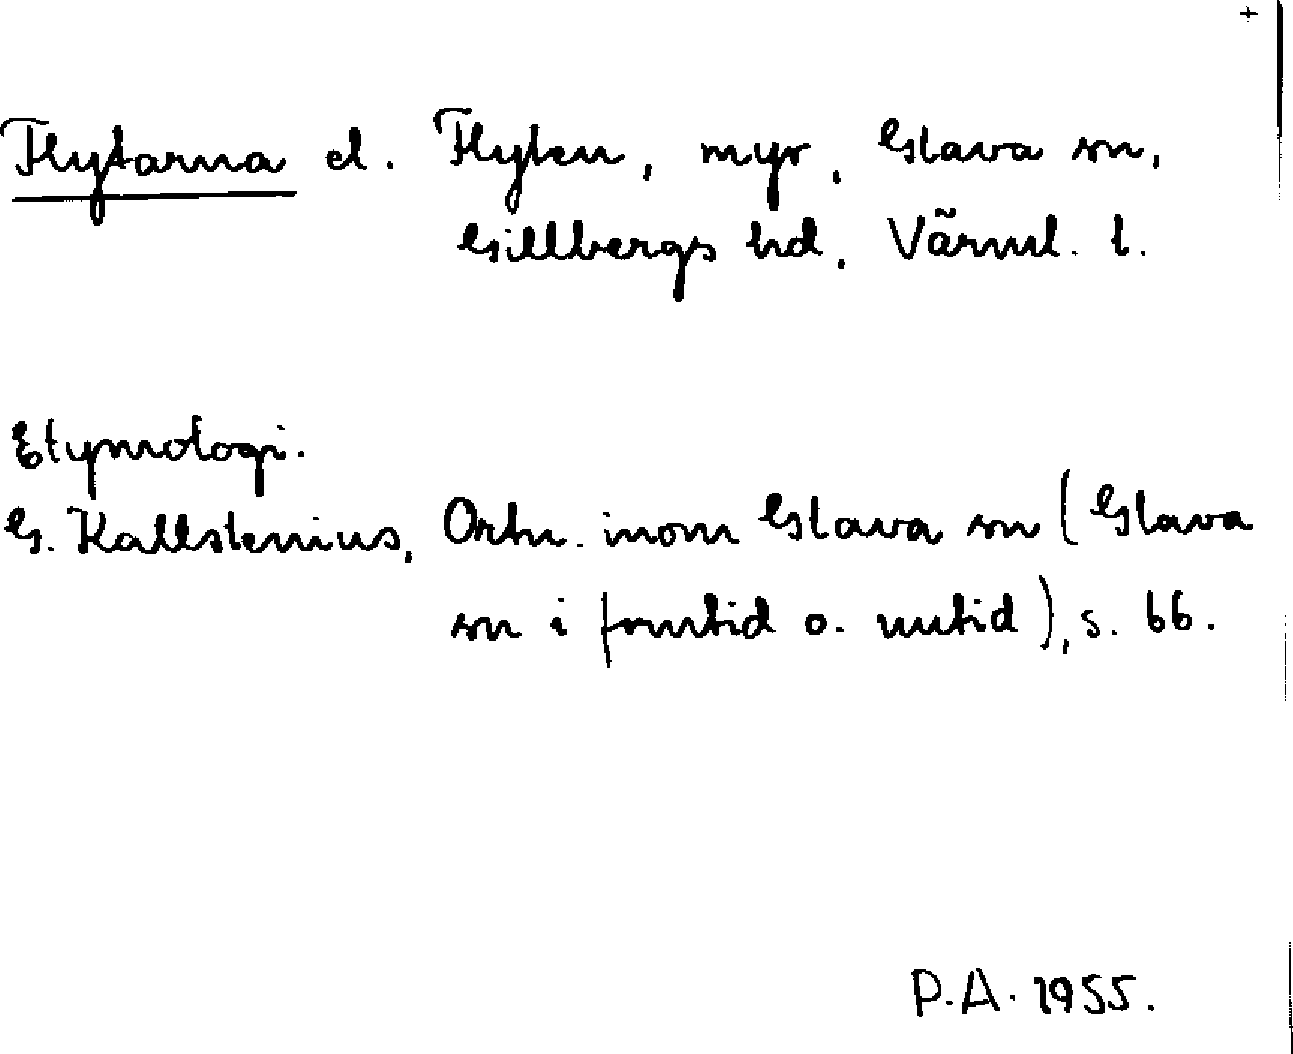 +
Flytarna el. Flyten, myr, Glava sn,
Gillbergs hd, Värml. l.
Etymologi.
G. Kallstenius, Ortn. inom Glava sn (Glava
sn i forntid o. nutid), s. 66.
P.A. 1955.